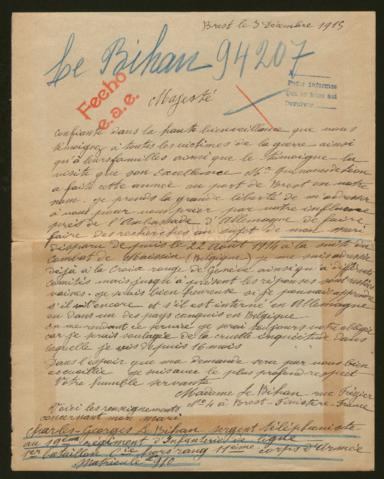 Brest le 3 décembre 1915
Le Bihan 94207
Fecho
e.a.e.
Majesté
Confiante dans la haute bienveillance que vous
témoignez à toutes les victimes de la guerre ainsi
qu'à leurs familles ainsi que le témoigne la
visite que son Excellence
a faite cette année au port de Brest en votre
nom. je prends la grande liberté de m'adresser
à vous pour vous prier par votre influence
près de l'Ambassade d'Allemagne de faire
faire des recherches au sujet de mon mari
disparu depuis le 22 Août 1914 à la suite du
combat de Maissin (Belgique) je me suis adressée
déjà à la Croix rouge de Genève ainsi qu'à différents
comités mais jusqu'à présent les réponses sont restées
vaines. je serais bien heureuse si je pouvais apprendre
s'il vit encore et s'il est interné en Allemagne
ou dans un des pays conquis en Belgique.
en me rendant ce service je serai toujours votre obligée
car je serais soulagée de la cruelle inquiétude dans
laquelle je vis depuis 16 mois
Dans l'espoir que ma demande sera par vous bien
accueillie
le plus profond respect
Votre humble servante
Madame Le Bihan rue
No 4 à Brest-Finistère-France
Voici les renseignements
concernant mon mari
Charles-Georges Le Bihan sergent téléphoniste
au 19ème régiment d'Infanterie de ligne
1er bataillon Cie hors rang 11ème corps d'Armée
Matricule 910